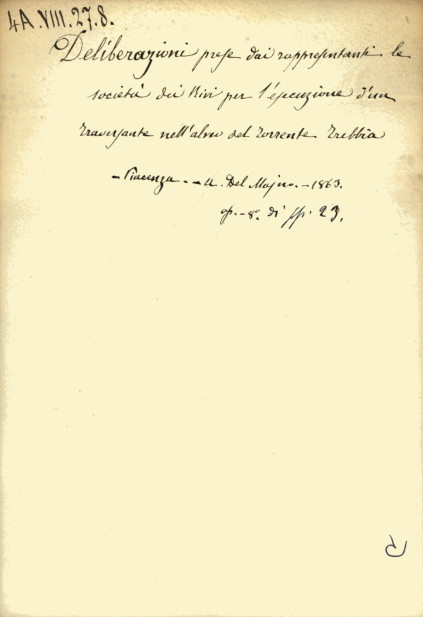 4A.VIII.27.8.
Deliberazioni prese dai rappresentanti le
società dei Rivi per l'esecuzione d'un
traversante nell'alveo del torrente Trebbia
- Piacenza. - A. Del Majno. - 1863.
op. - 8°. di pp. 23.